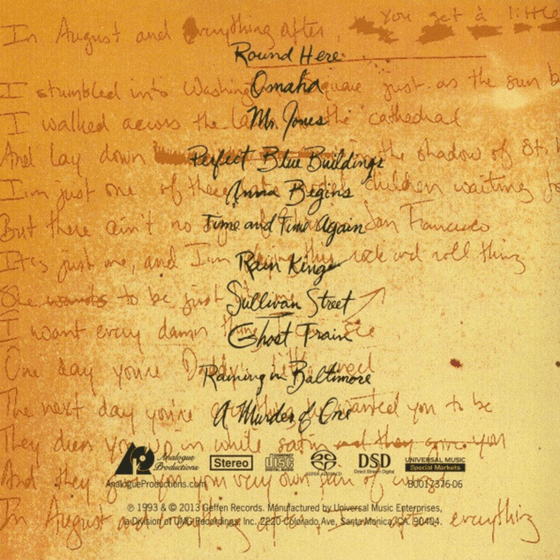 In August and Everything after, you get a little
Round Here
I stumbled into Washington square just as the sun b
Omaha
I walked across the la the cathedral
Mr. Jones
And lay down the shadow of St.
Perfect Blue Buildings
I'm just one of these children waiting
Anna Begins
But there ain't no San Francisco
Time and Time Again
It's just me, and I'm this rock and roll thing
Rain King
She wants to be just
Sullivan Street
I want every damn thing
Ghost Train
One day you're Daddy's little
Raining in Baltimore
The next day you're wanted you to be
A Murder of One
They dress you up in white satin and they give you
Analogue Productions
Stereo
COMPACT disc DIGITAL AUDIO
SUPER AUDIO CD
DSD
Direct Stream Digital
UNIVERSAL MUSIC
Special Markets
And they your very own pair of wings
AnalogueProductions.com
B0012376-06
℗ 1993 & © 2013 Geffen Records. Manufactured by Universal Music Enterprises,
In August and everything after, everything
a Division of UMG Recordings, Inc. 2220 Colorado Ave., Santa Monica, CA. 90404.